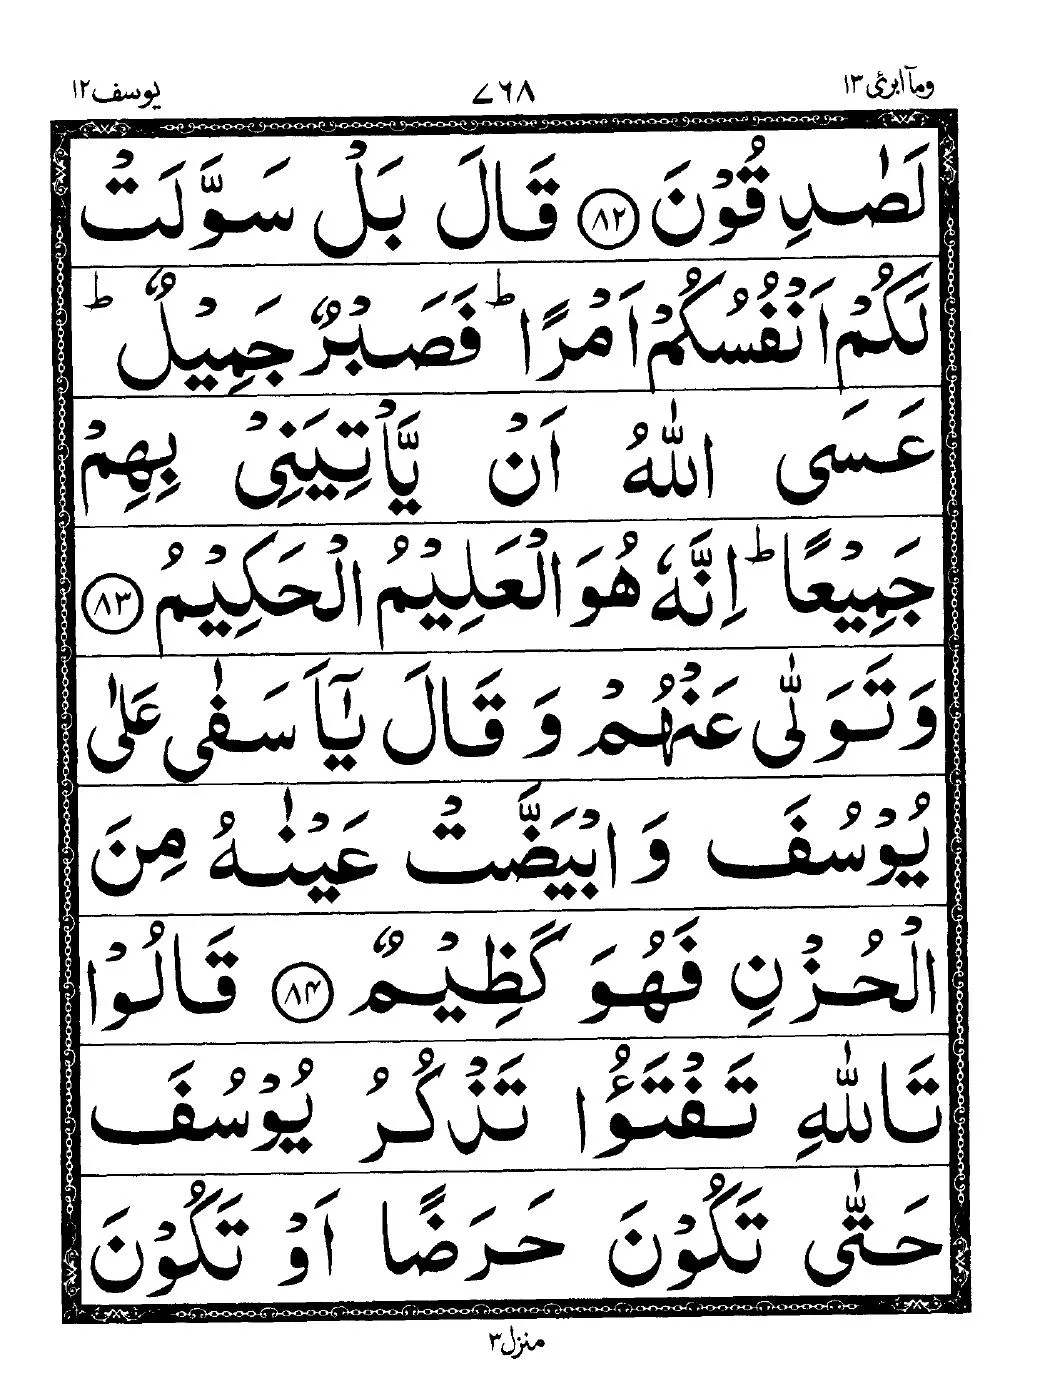 ومآ ابرئ ۱۳ ۷۶۸ یوسف ۱۲
لَصٰدِقُوْنَ ۝۸۲ قَالَ بَلْ سَوَّلَتْ
لَكُمْ اَنْفُسُكُمْ اَمْرًا ؕ فَصَبْرٌ جَمِیْلٌ ؕ
عَسَی اللّٰهُ اَنْ یَّاْتِیَنِیْ بِهِمْ
جَمِیْعًا ؕ اِنَّهٗ هُوَ الْعَلِیْمُ الْحَكِیْمُ ۝۸۳
وَ تَوَلّٰی عَنْهُمْ وَ قَالَ یٰۤاَسَفٰی عَلٰی
یُوْسُفَ وَ ابْیَضَّتْ عَیْنٰهُ مِنَ
الْحُزْنِ فَهُوَ كَظِیْمٌ ۝۸۴ قَالُوْا
تَاللّٰهِ تَفْتَؤُا تَذْكُرُ یُوْسُفَ
حَتّٰی تَكُوْنَ حَرَضًا اَوْ تَكُوْنَ
منزل ۳